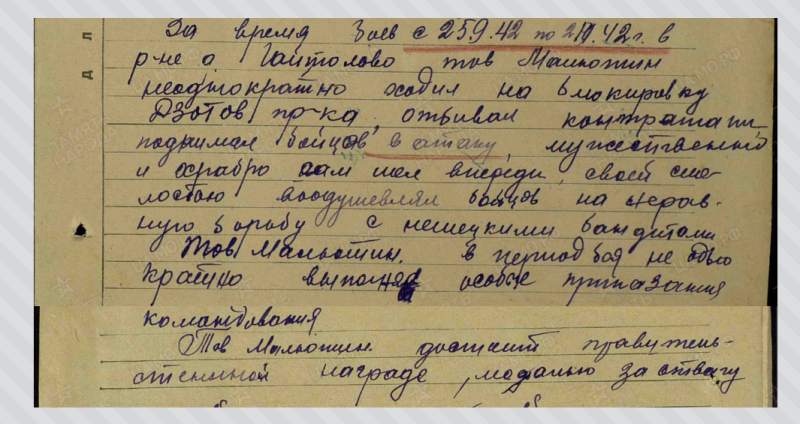 За время боев с 25.9.42 по 2.11.42 г. в
р-не д Гайтолово тов Малюгин
неоднократно ходил на блокировку
Дзотов пр-ка, отбивал контратаки,
поднимал бойцов в атаку, мужественно
и храбро сам шел впереди, своей сме-
лостью воодушевлял бойцов на нерав-
ную борьбу с немецкими бандитами
Тов Малюгин. в период боя не одно
кратно выполнял особые приказания
командования
Тов Малюгин. достоин правитель-
ственной награде, медалью за отвагу
д л